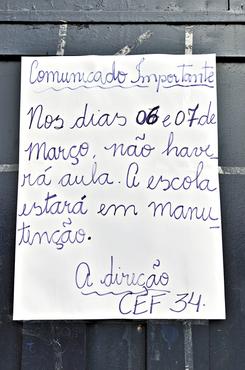 Comunicado Importante
Nos dias 06 e 07 de
Março, não have_
rá aula. A escola
estará em manu_
tenção.
A direção
CEF 34.